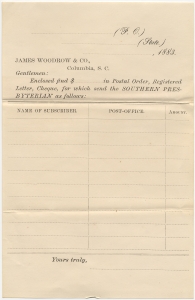 (P. O.)
(State,)
, 1883.
JAMES WOODROW & CO.,
Columbia, S. C.
Gentlemen:
Enclosed find $ in Postal Order, Registered
Letter, Cheque, for which send the SOUTHERN PRES-
BYTERIAN as follows:
NAME OF SUBSCRIBER. POST-OFFICE. AMOUNT.
Yours truly,